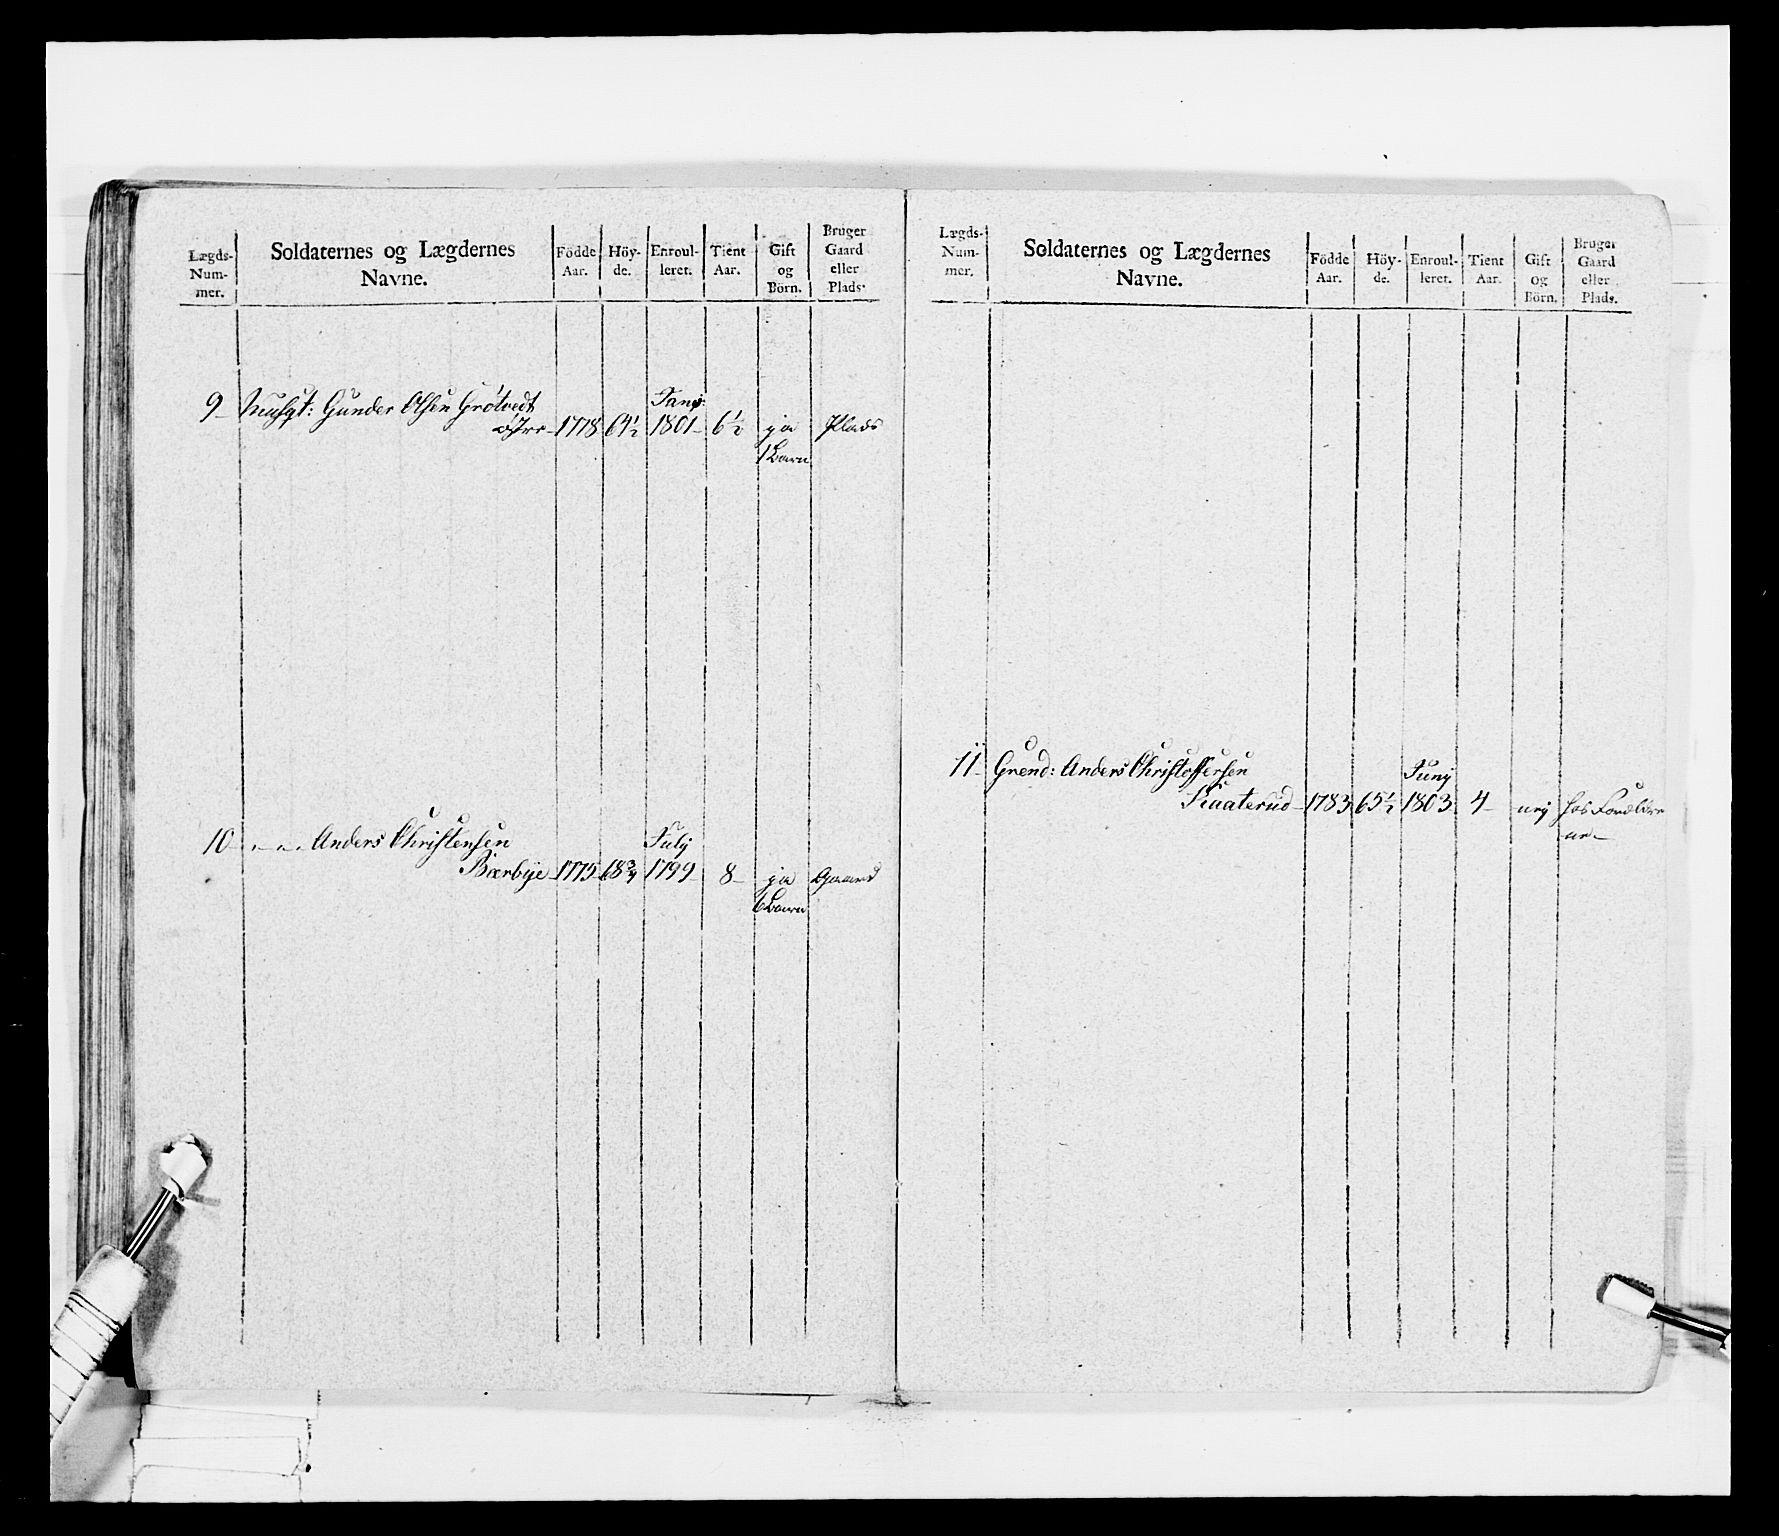 Lægds-
Num-
mer.
Soldaternes og Lægdernes
Navne.
Födde
Aar.
Höy-
de.
Enroul-
leret.
Tient
Aar.
Gift
og
Börn.
Bruger
Gaard
eller
Plads.
9 Musqt: Gunder Olsen Grötvedt
östre 1778 64½ Janj: 1801 6½ ja Plads
1 Barn
10 " " Anders Christensen
Bærbye 1775 68¾ July 1799 8 ja Gaard
6 Barn
Lægds-
Num-
mer.
Soldaternes og Lægdernes
Navne.
Födde
Aar.
Höy-
de.
Enroul-
leret.
Tient
Aar.
Gift
og
Börn.
Bruger
Gaard
eller
Plads.
11 Grend: Anders Christoffersen
Kaaterud 1783 65½ Junj 1803 4 nej hos Forældre
ne